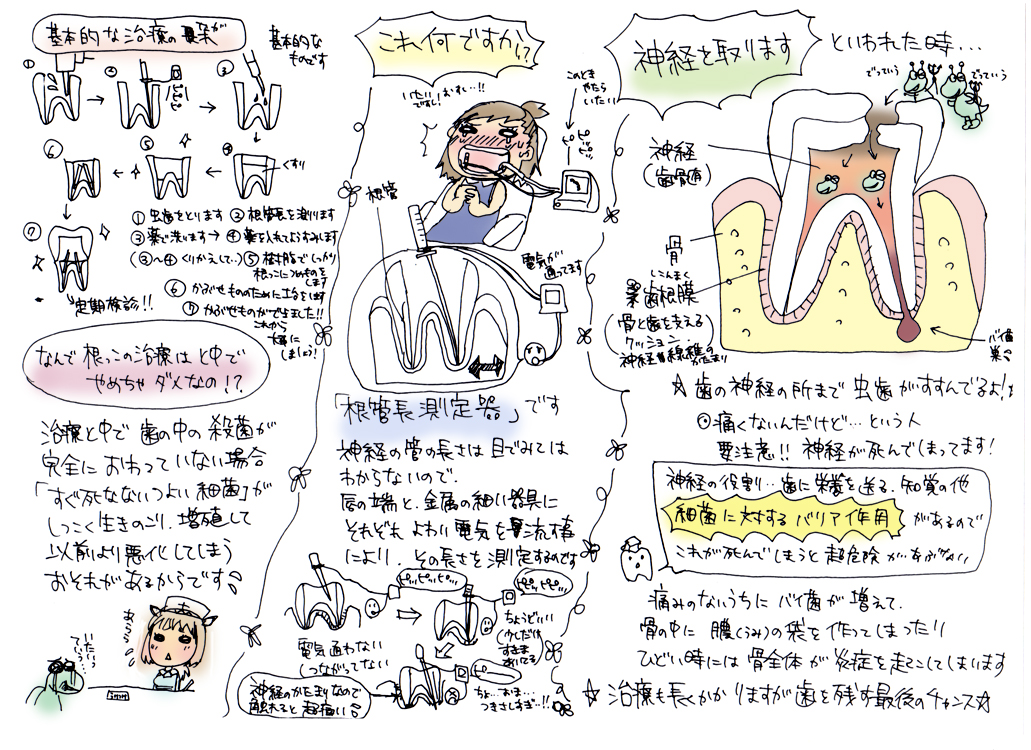 神経を取ります
といわれた時…
でっていう
でっていう
神経
(歯骨随)
骨
しこんまく
歯根膜
骨と歯を支える
クッション
神経線維の
かたまり
バイ菌
巣
☆歯の神経の所まで 虫歯がすすんでるよ!!
◎痛くないんだけど…という人
要注意!! 神経が死んでしまってます!
神経の役割…歯に栄養を送る、知覚の他
細菌に対するバリア作用
があるので
これが死んでしまうと超危険があぶない
痛みのないうちに バイ菌が 増えて、
骨の中に 膿(うみ)の袋を作ってしまったり
ひどい時には骨全体が炎症を起こしてしまいます
☆治療も長くかかりますが歯を残す最後のチャンス☆
これ何ですか!?
いたい
ですし!おすし…!!
このとき
やたら
いたい
ピピ
ピッ
根管
電気が
通ってます
「根管長測定器」です
神経の管の長さは目でみては
わからないので、
唇の端と、金属の細い器具に
それぞれ よわい電気を流す事
により、その長さを測定するのです
ピッピッピッ…
ピピッピピ…
電気通わない
(つながってない
ちょうどいい
(少しだけ
すきま
あいてる)
神経のかたまりなので
触れると超痛い
ピー
ちょ…おま…
つきさしすぎ…!!
基本的な治療の
基本的な
ものです
①
②
③
④
くすり
⑤
⑥
⑦
①虫歯をとります ②根管長を測ります
③薬で洗います→④薬を入れてようすみます
(③〜④くりかえして…)⑤樹脂でしっかり
根っこにつめものを
します
⑥かぶせもののために工事をします
⑦かぶせものができました!!
これから
大事に
しましょう!
定期検診!!
なんで根っこの治療は と中で
やめちゃダメなの!?
治療と中で 歯の中の殺菌が
完全におわっていない場合
「すぐ死なないつよい細菌」が
しつこく生きのこり、増殖して
以前より悪化してしまう
おそれがあるからです
あらら
いたいっ
ていう…